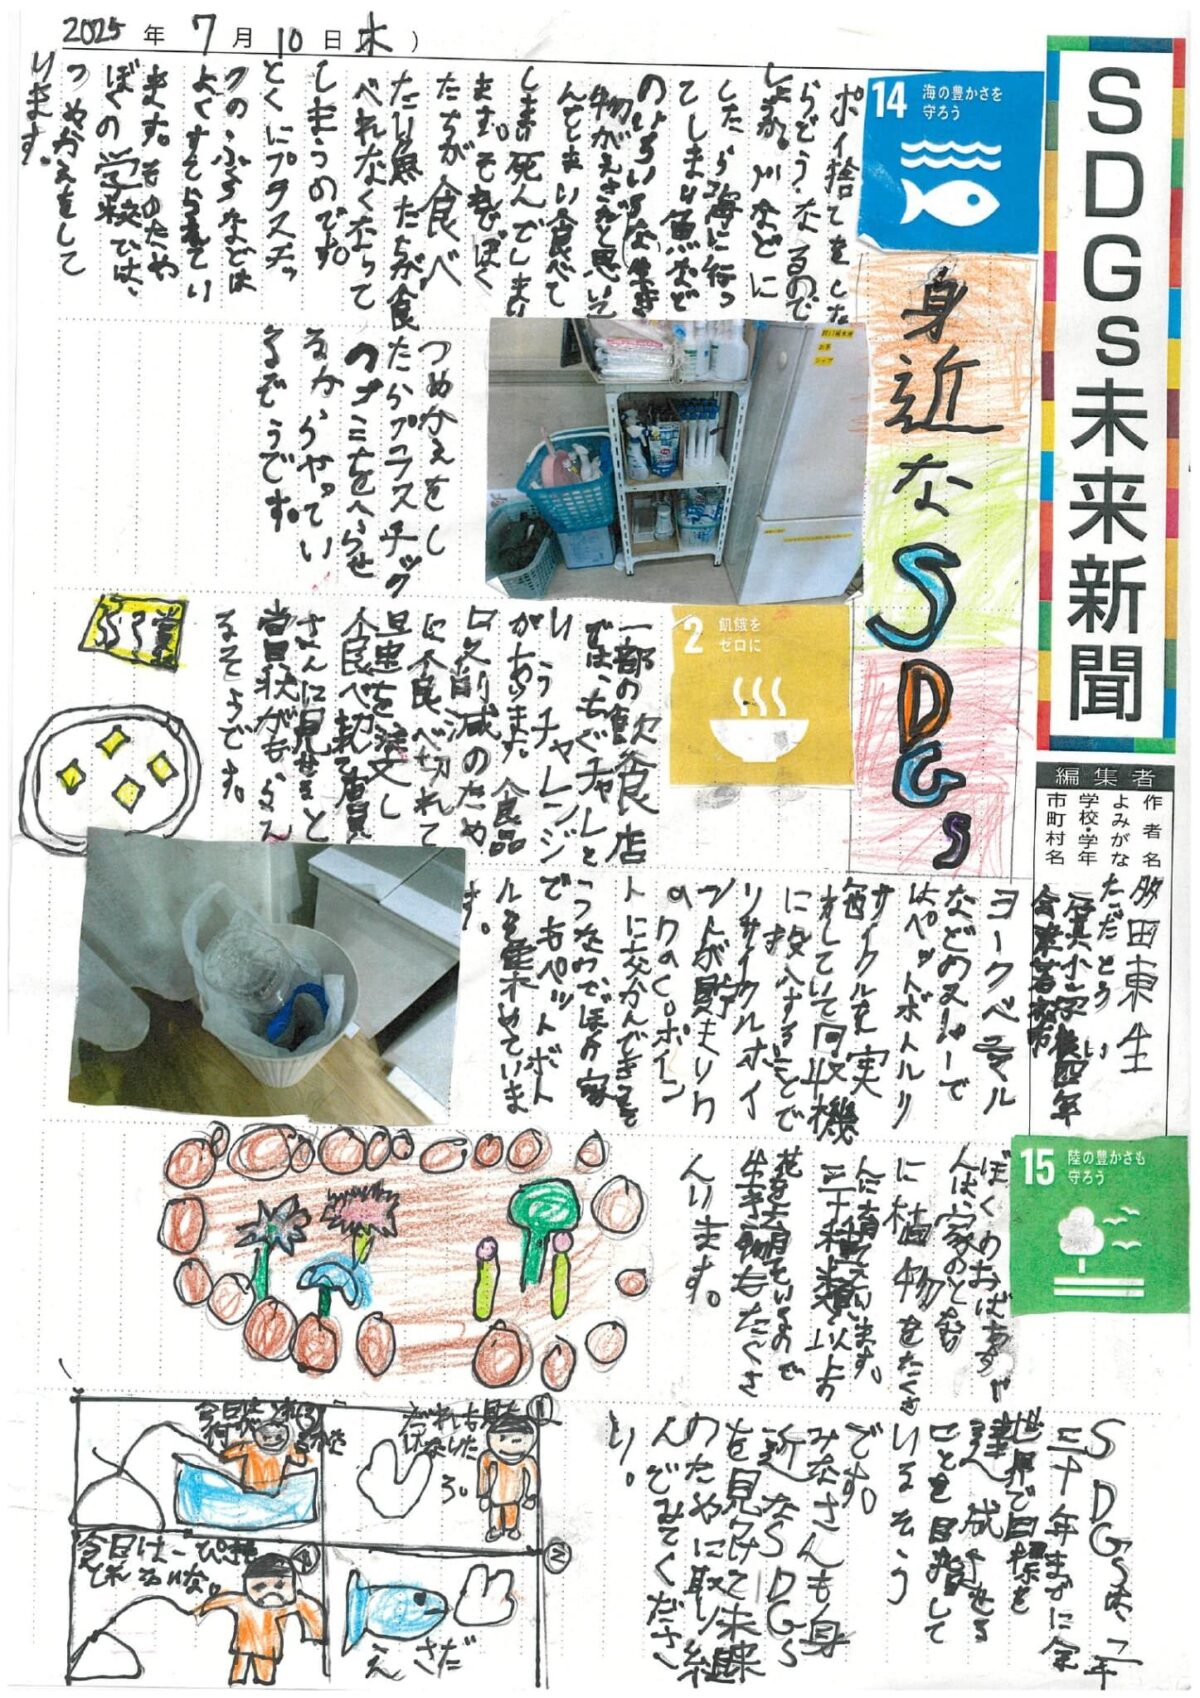 2025年7月10日(木)
SDGs未来新聞
編集者
作者名 多田東生
よみがな ただとうい
学校・学年
市町村名 会津若松市
身近なSDGs
14 海の豊かさを
守ろう
ポイ捨てをした
らどうなるので
しょうか。川などに
したら海に行っ
てしまい魚など
のいろいろな生き
物がえさだと思い
んでしまい食べて
しまい死んでしまい
ます。それをぼく
たちが食べ、
たり魚たちが食
べれなくなって
しまうのです。
とくにプラスチッ
クのふくろなどは
よくすてられてい
ます。そのため
ぼくの学校では、
つめかえをして
います。
つめかえをし
たらプラスチック
のゴミをへらせ
るからやってい
るそうです。
2 飢餓を
ゼロに
一部の飲食店
では、もぐチャレと
いうチャレンジ
があります。食品
ロス削減のため
に食べ切れて
旦還を注文し
食べ切って店員
さんに見せると
賞状がもらえ
るそうです。
ヨークベニマル
などのスーパーで
はペットボトルリ
サイクルを実
施していて回収機
に投入することで
リサイクルポイ
ントが貯まりn
anacoポイン
トに交かんできる
そうなのでぼくの家
でもペットボト
ルを集めていま
す。
15 陸の豊かさも
守ろう
ぼくのおばあちゃ
んは家のとなり
に植物をたくさ
んに植えています。
三十種類以上の
花を育てているので
生き物もたくさ
んいます。
SDGsは、二千
三十年までに全
世界で目標を
達成させる
ことを目指して
いるそう
です。
みなさんも身
近なSDGs
を見つけて未来
のために取り組
んでみてくださ
い。
①
だれも見て
ないな
いけないだろ
ろ。
②
えさだ
今日は
今日は一ぴきも
とれないな。